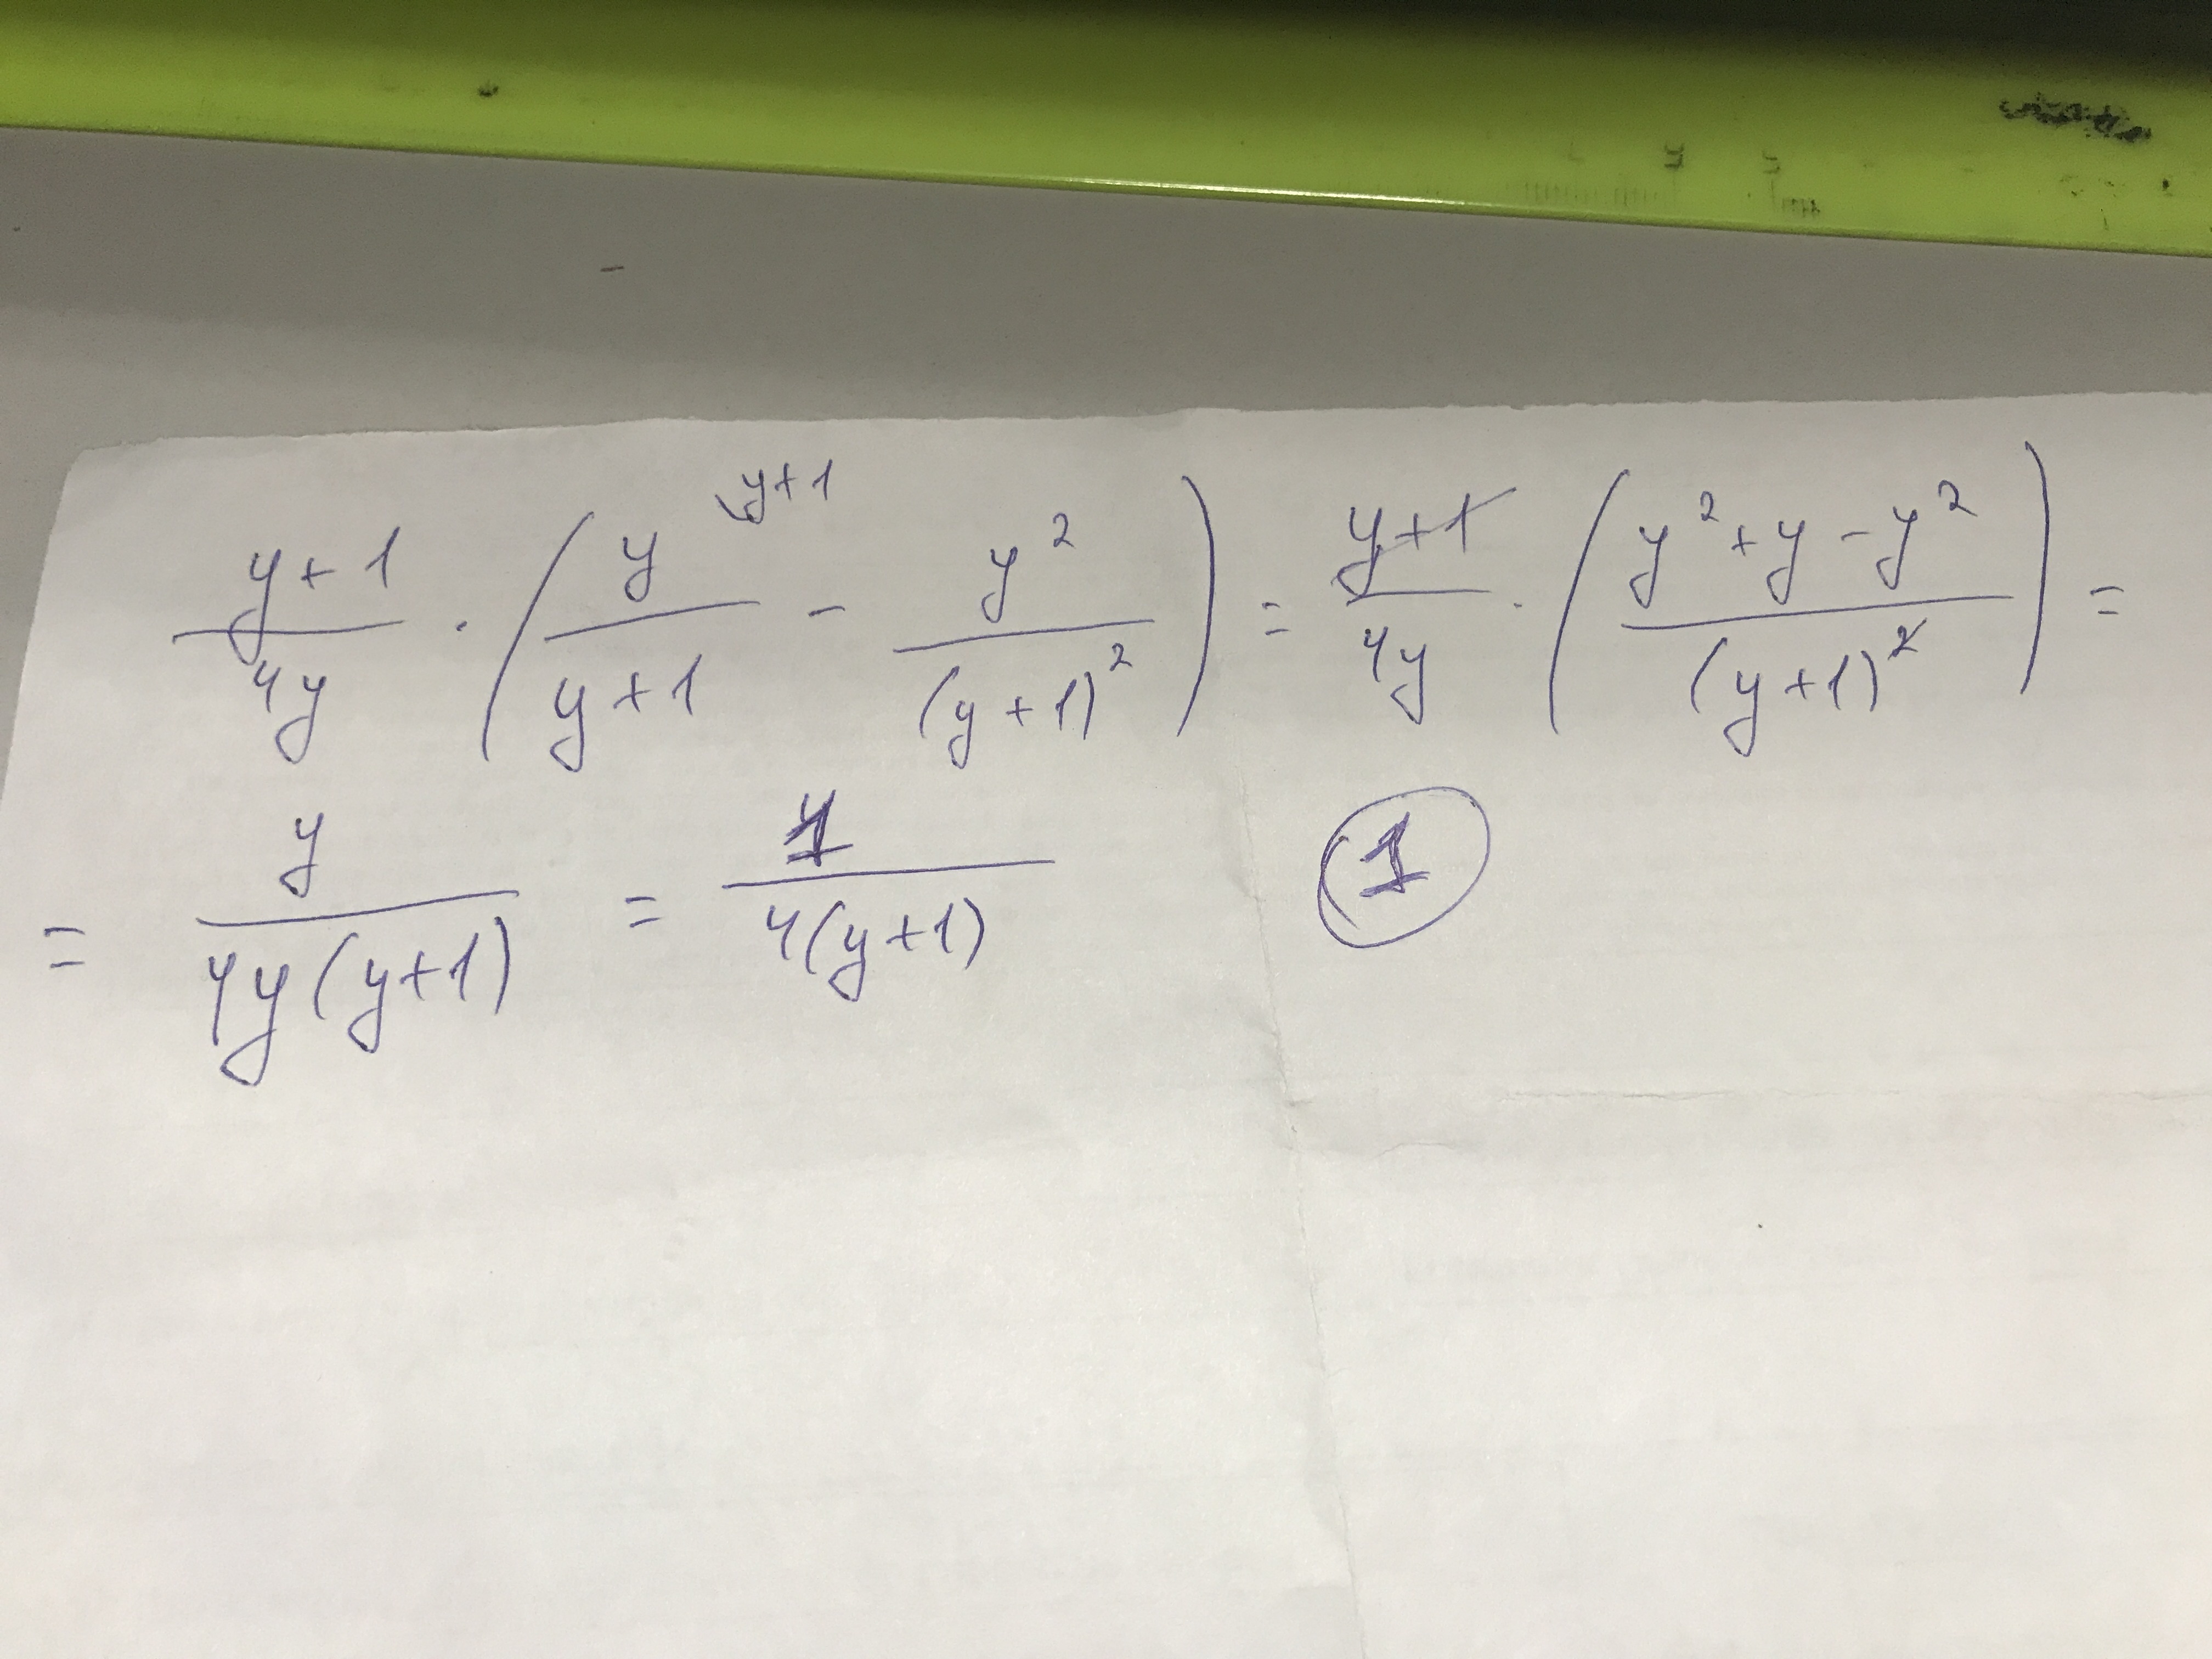 (y+1)/(4y) · (y/(y+1) ^(y+1) - y²/(y+1)²) = (y+1)/(4y) · ((y²+y-y²)/(y+1)²) =
= y/(4y(y+1)) = 1/(4(y+1)) 1